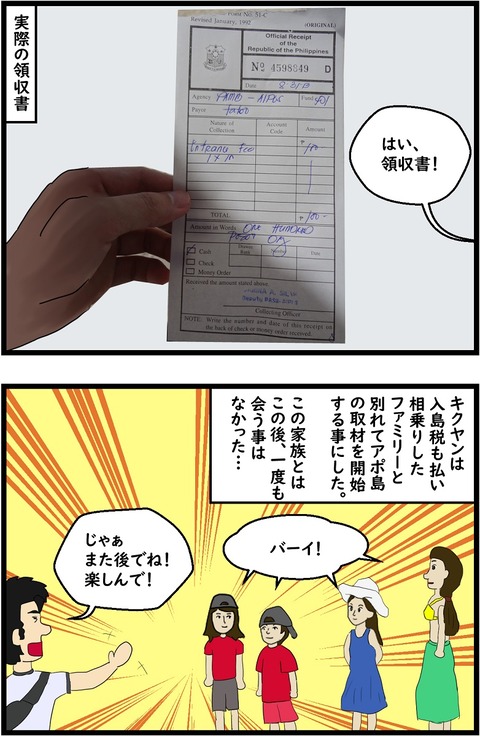 実際の領収書
Form No. 51-C
Revised January, 1992
(ORIGINAL)
Official Receipt
of the
Republic of the Philippines
No 4598849 D
Date
Agency PAMB - AIPLS
Fund 401
Payor
Nature of
Collection
Account
Code
Amount
Entrance fee
100-
TOTAL
₱100-
Amount in Words ONE HUNDRED
PESOS ONLY
Cash
Check
Money Order
Drawee
Bank
Number
Date
Received the amount stated above.
Collecting Officer
NOTE: Write the number and date of this receipt on
the back of check or money order received.
はい、
領収書!
キクヤンは
入島税も払い
相乗りした
ファミリーと
別れてアポ島
の取材を開始
する事にした。
この家族とは
この後、一度も
会う事は
なかった…
じゃぁ
また後でね!
楽しんで!
バーイ!